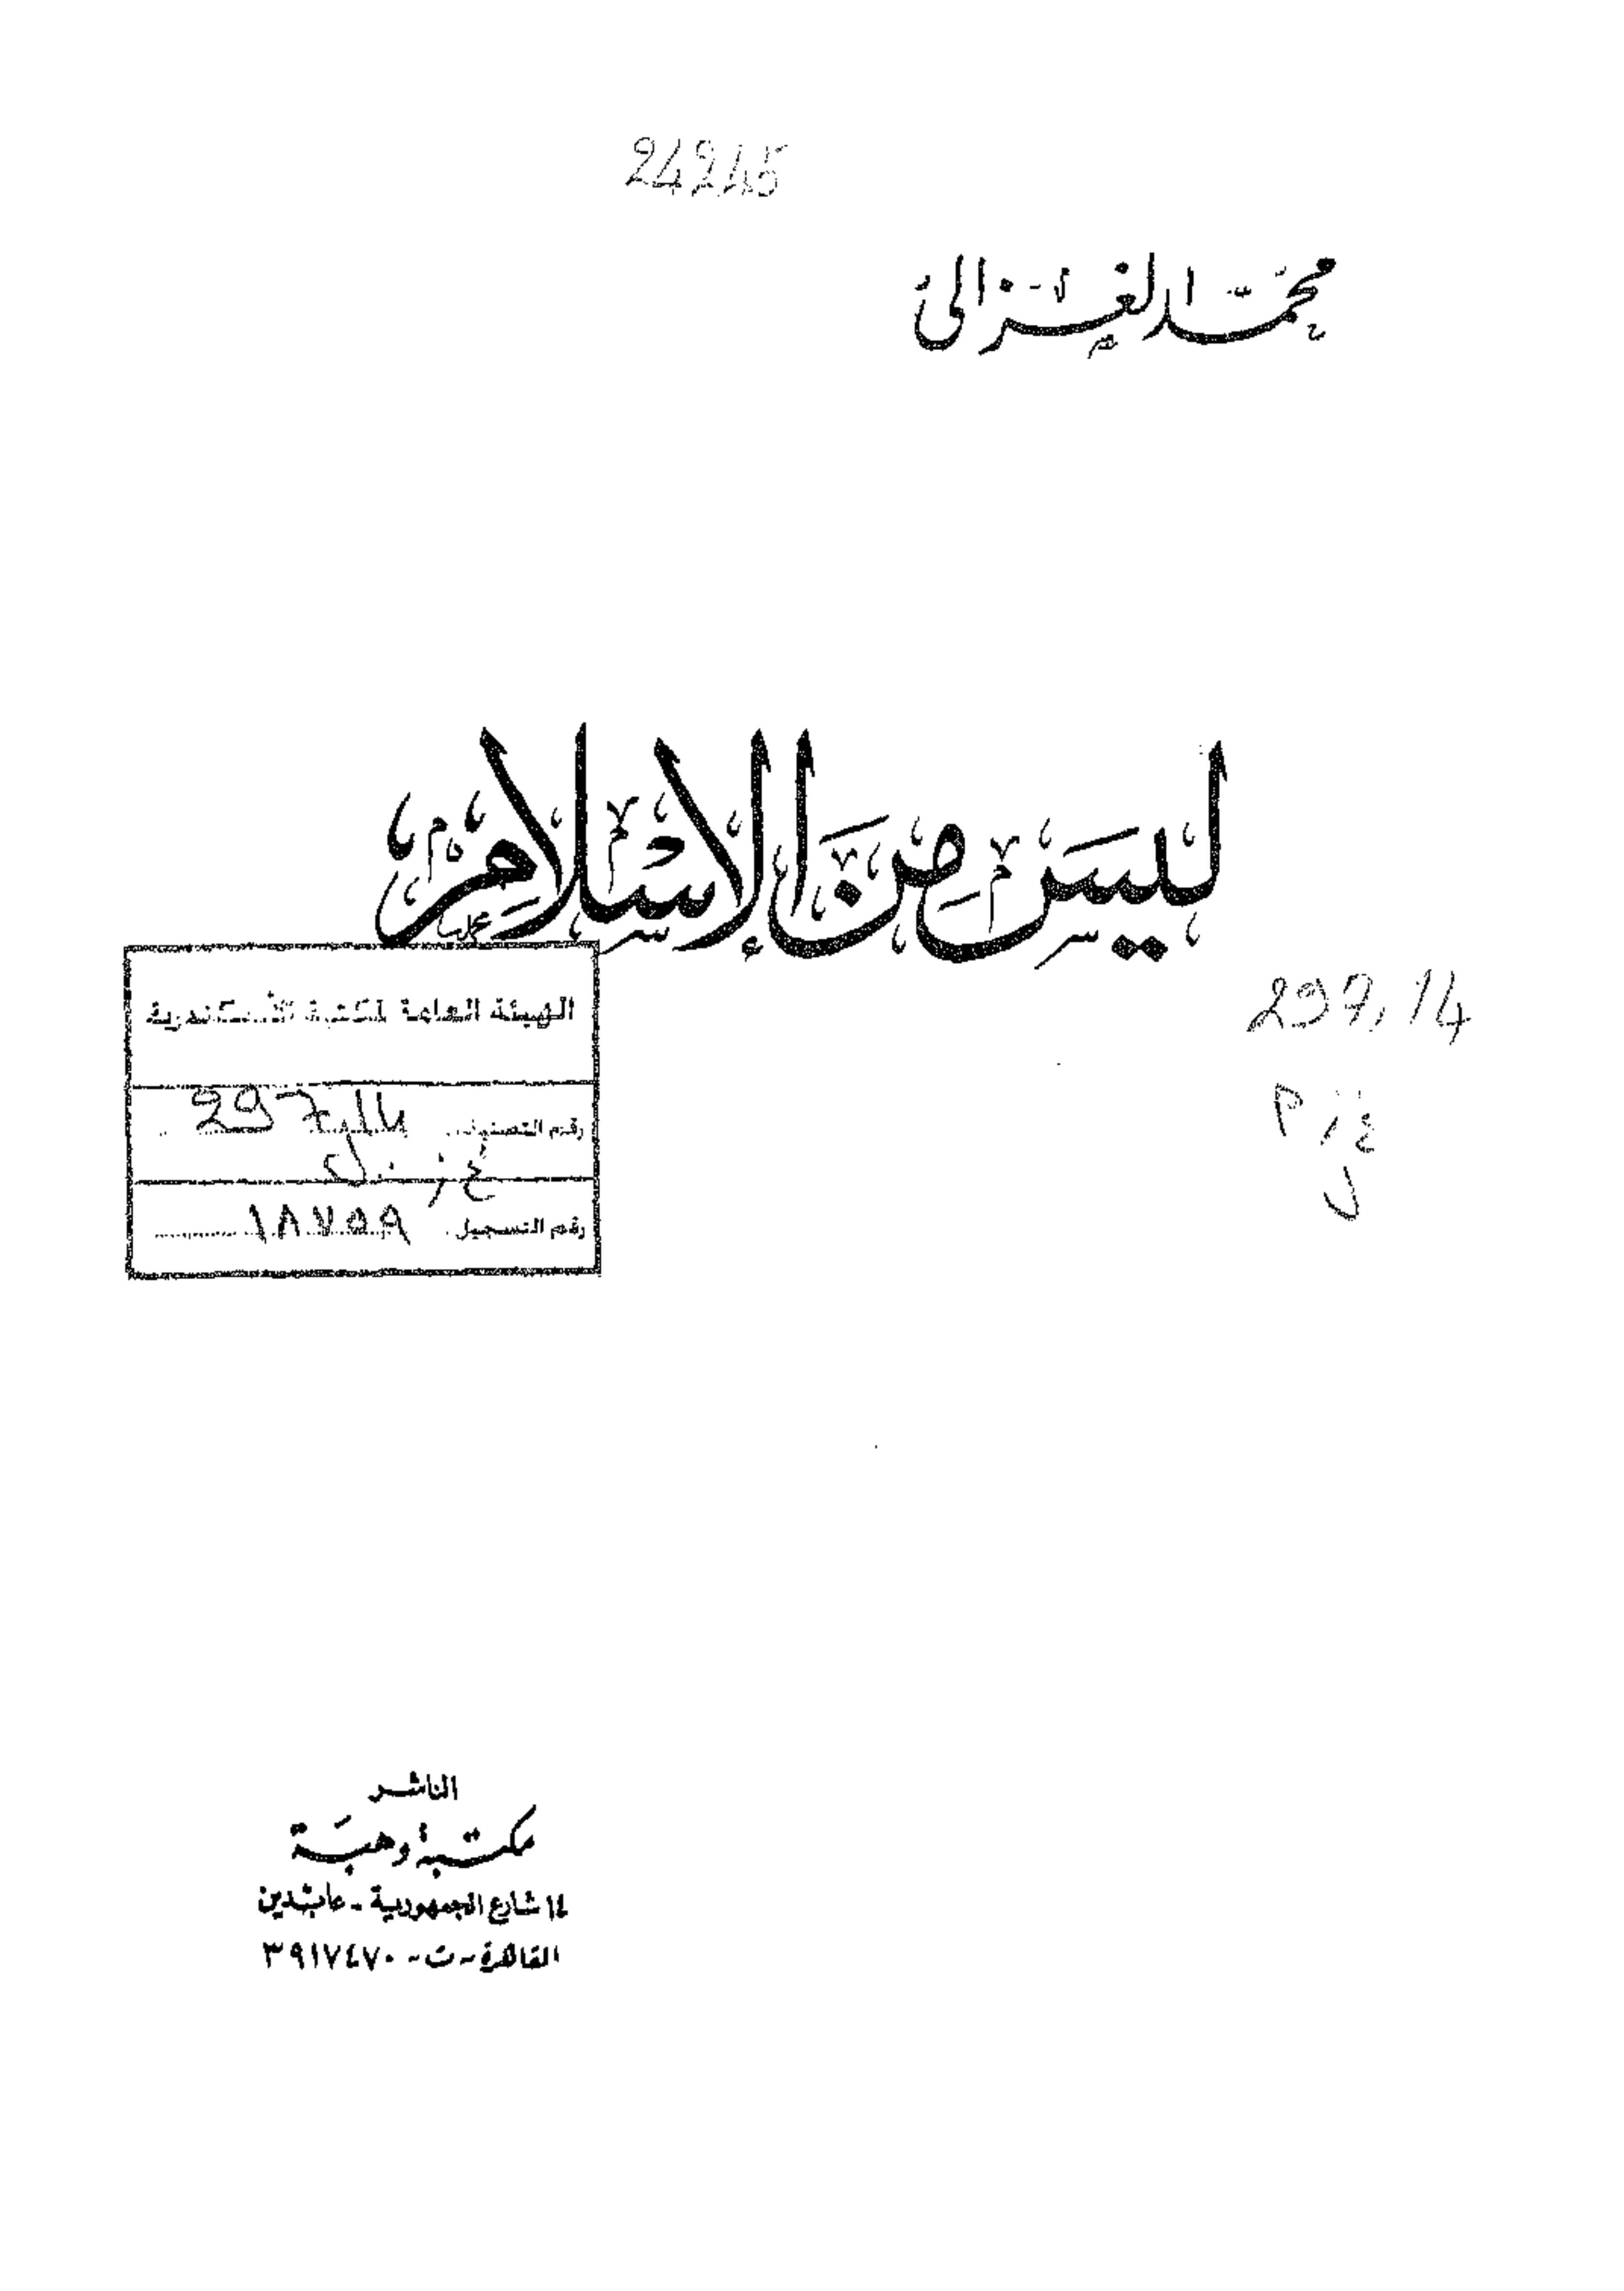 24245
محمد الغزالى
ليسَ مِنَ الإسْلامِ
297,14
الهيئة العامة لمكتبة الأسكندرية
رقم التصنيف 297,14
غ ز . ل
رقم التسجيل ١٨٧٥٩
غ ز
ل
الناشر
مكتبة وهبة
١٤ شارع الجمهورية - عابدين
القاهرة - ت - ٣٩١٧٤٧٠